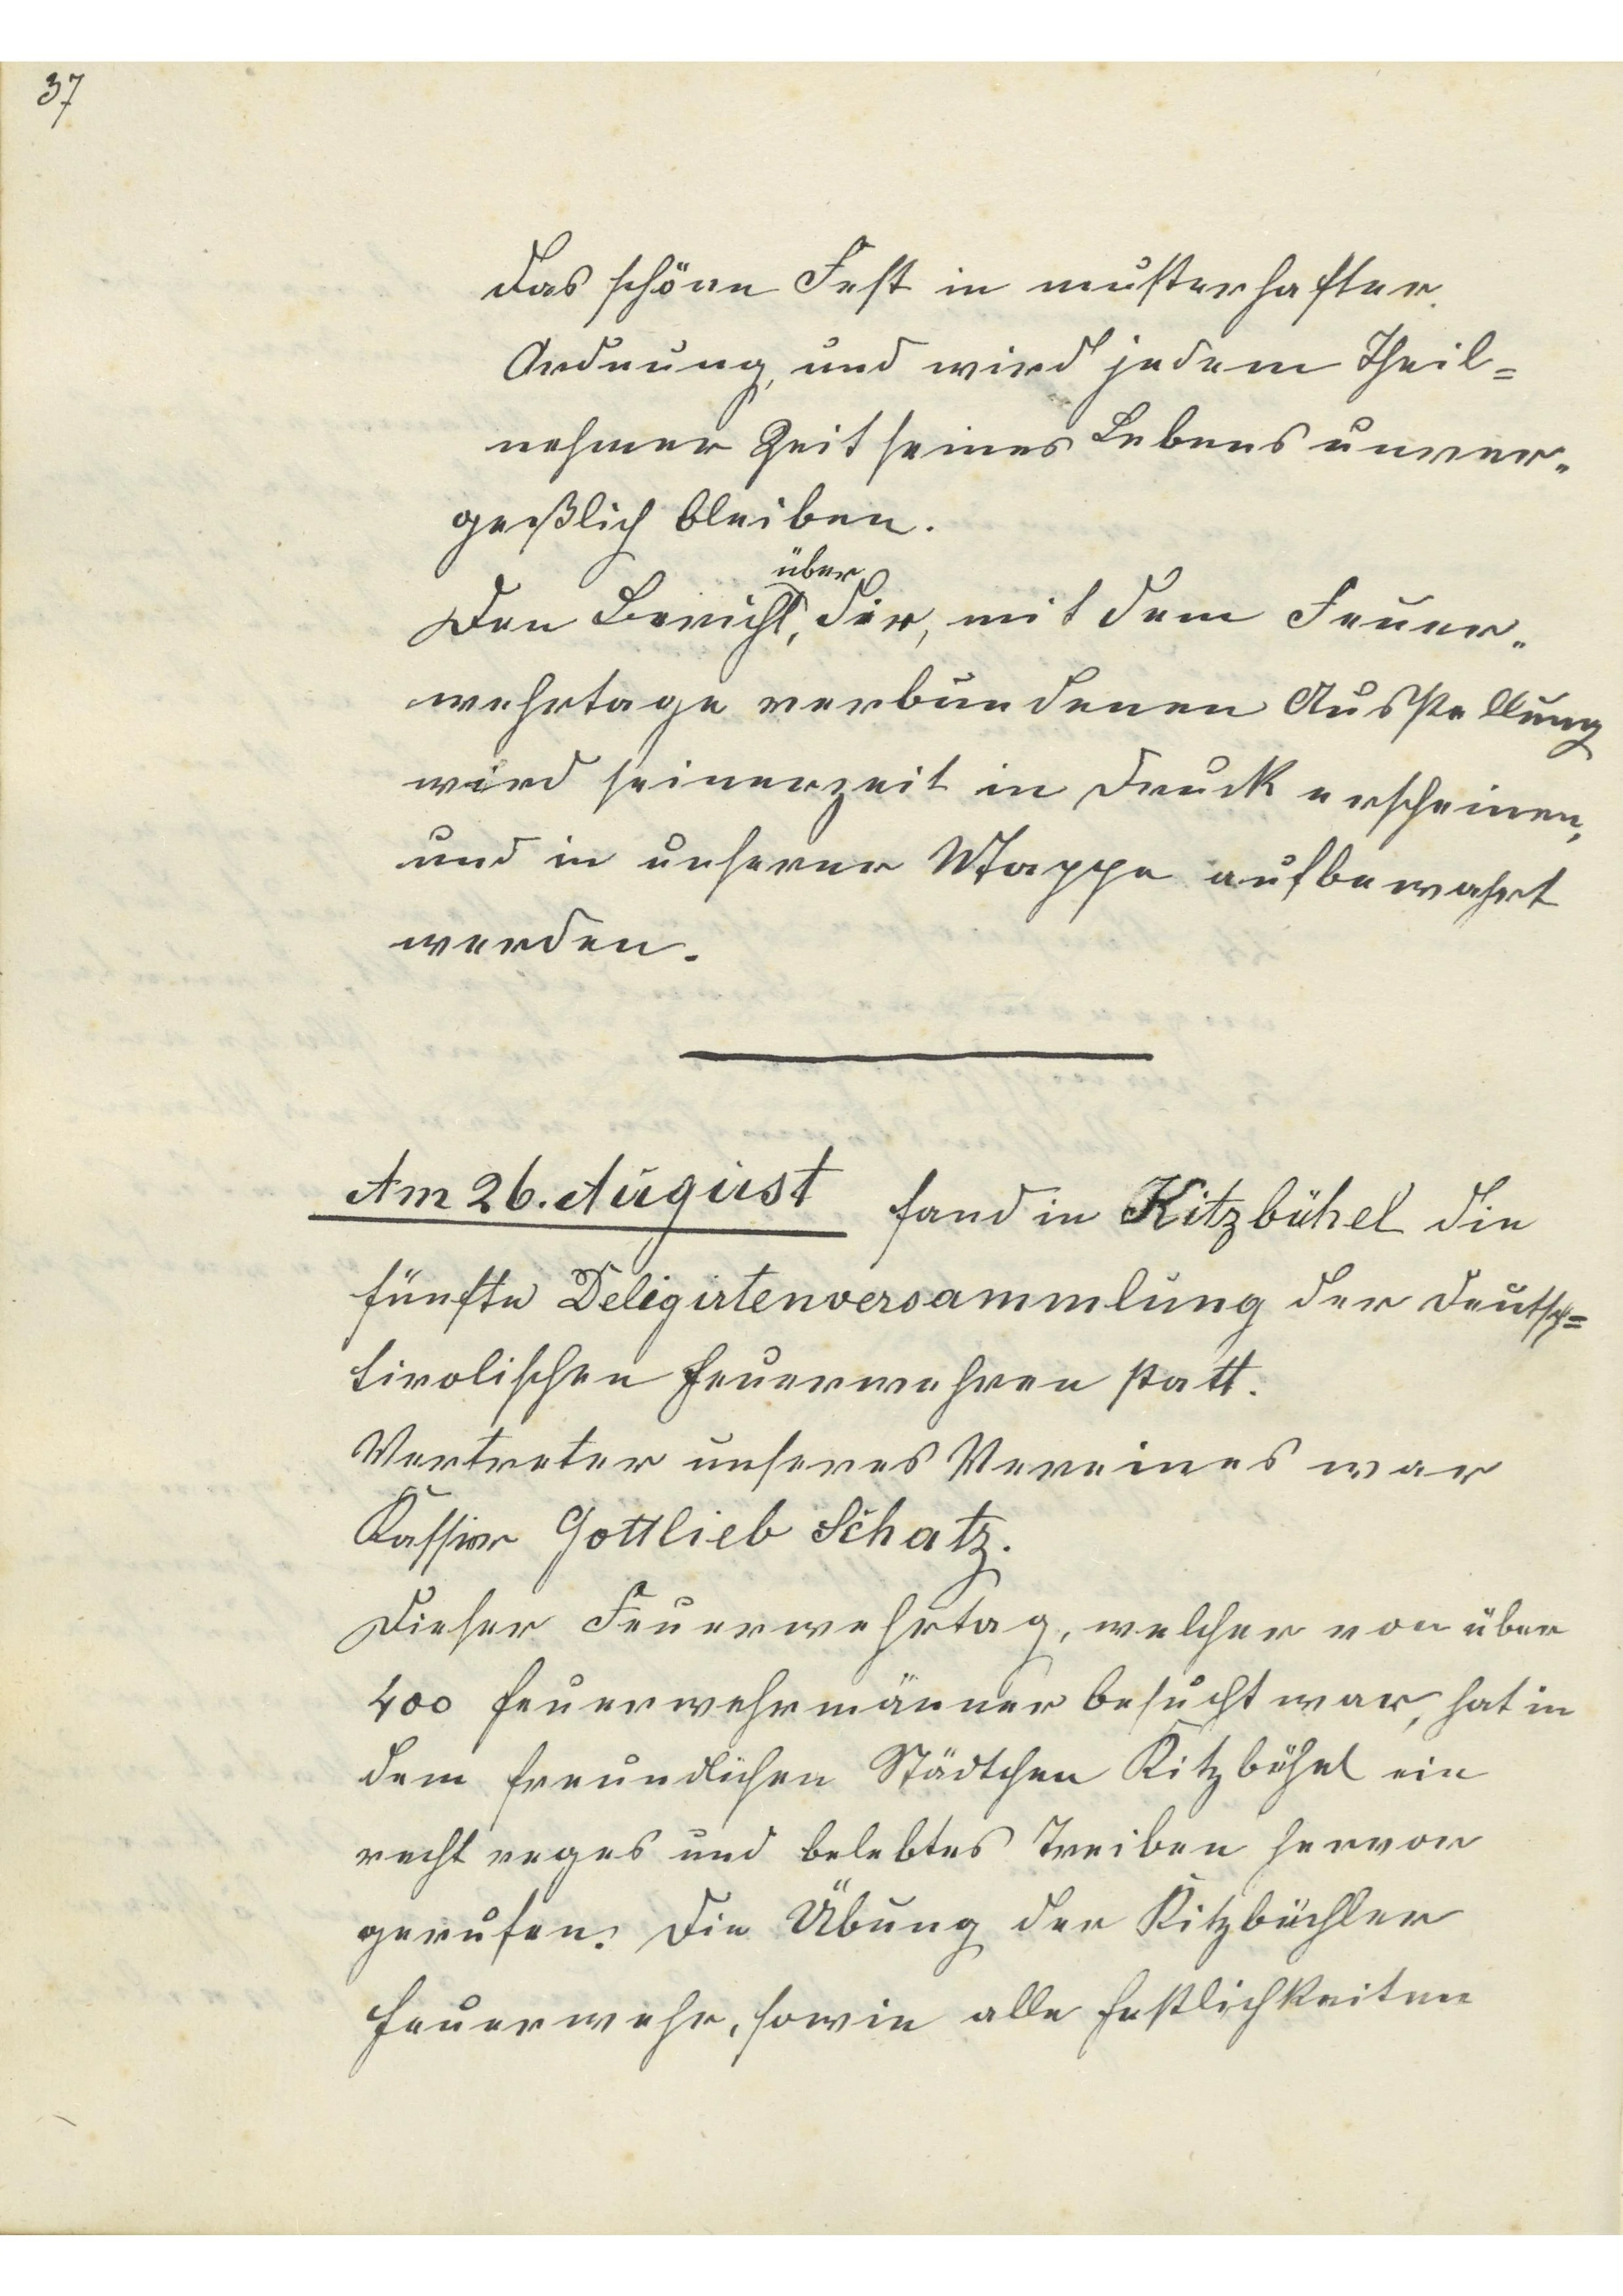 37
das schöne Fest in musterhafter
Ordnung, und wird jedem Theil=
nehmer Zeit seines Lebens unver=
geßlich bleiben.
über
Den Bericht, der, mit dem Feuer=
wehrtage verbundenen Ausstellung
wird seinerzeit in Druck erscheinen,
und in unserer Mappe aufbewahrt
werden.
Am 26. August fand in Kitzbühel die
fünfte Deligirtenversammlung der deutsch=
tirolischen Feuerwehren statt.
Vertreter unseres Vereines war
Kassier Gottlieb Schatz.
Dieser Feuerwehrtag, welcher von über
400 Feuerwehrmänner besucht war, hat in
dem freundlichen Städtchen Kitzbühel ein
recht reges und belebtes Treiben hervor
gerufen. Die Übung der Kitzbüchler
Feuerwehr, sowie alle Festlichkeiten